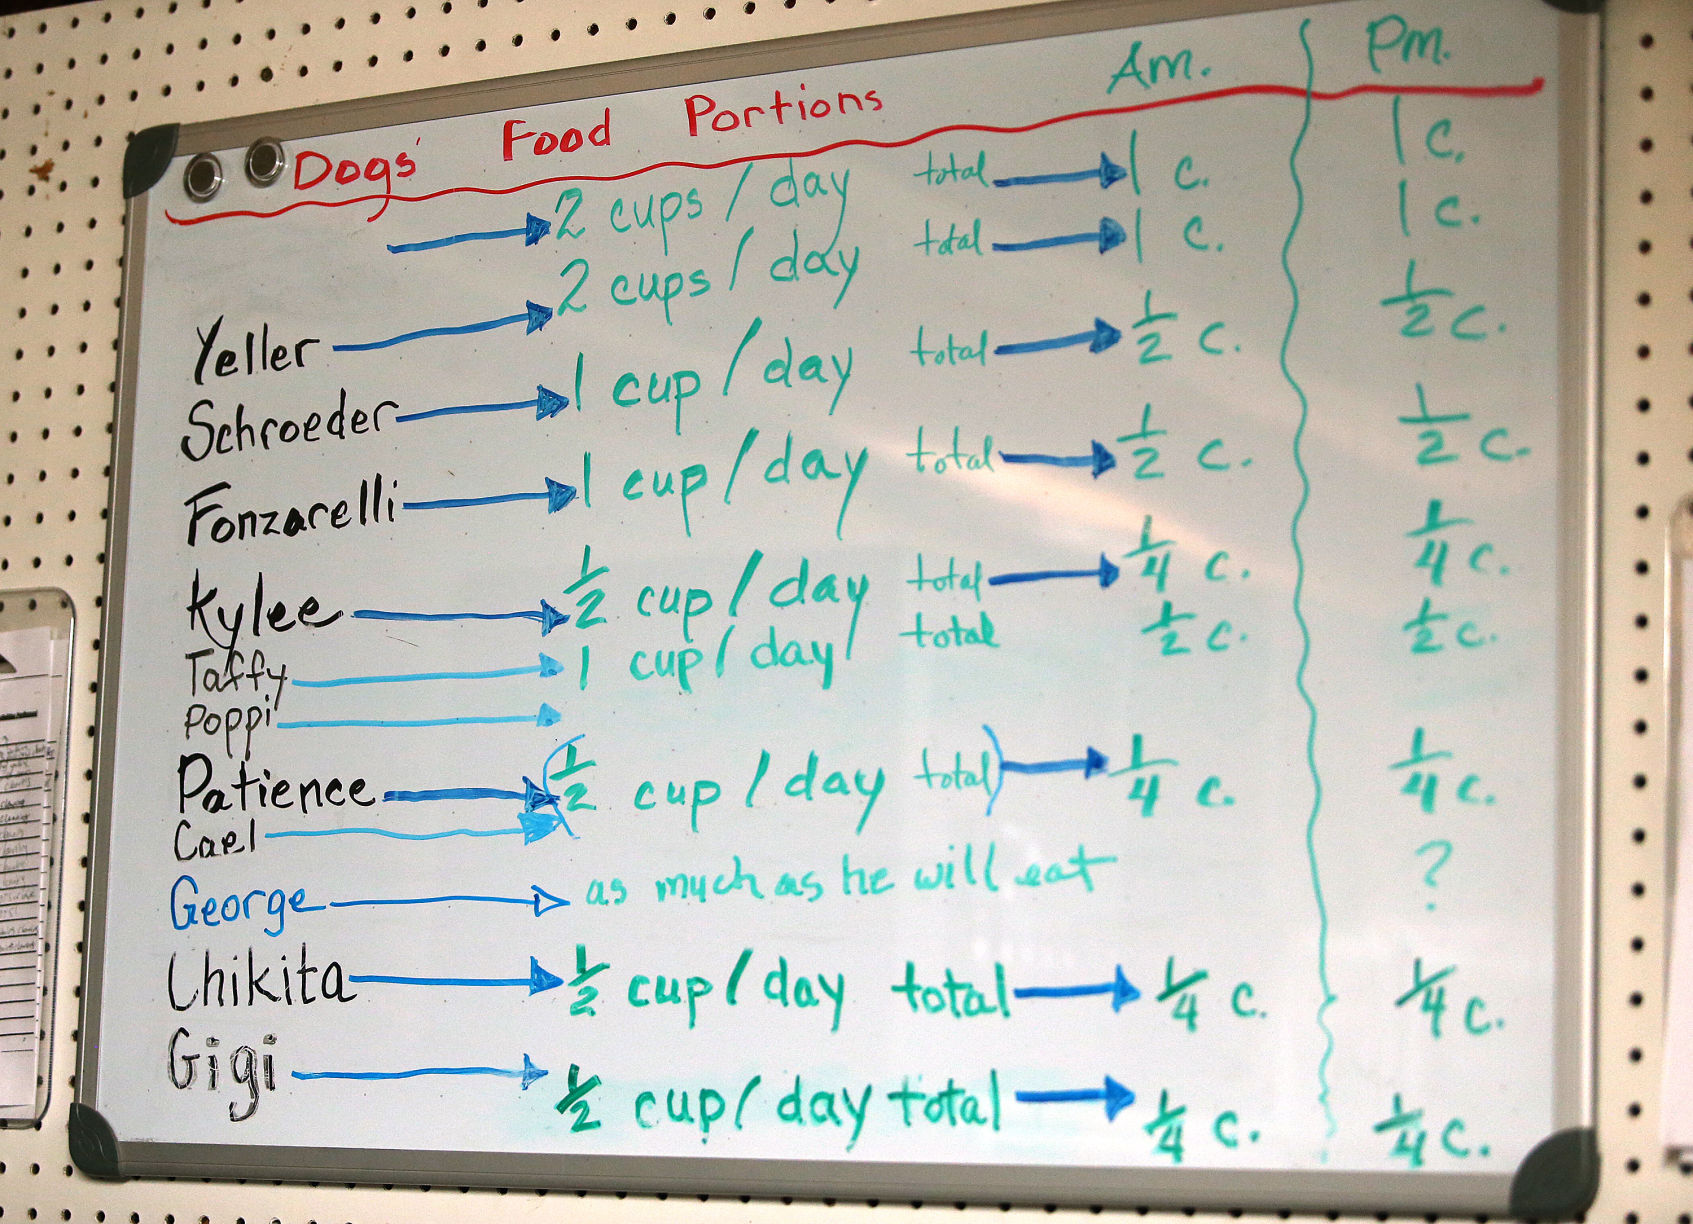 Am. Pm.
Dogs' Food Portions
→ 2 cups / day total → 1 c. 1 c.
Yeller → 2 cups / day total → 1 c. 1 c.
Schroeder → 1 cup / day total → 1/2 c. 1/2 c.
Fonzarelli → 1 cup / day total → 1/2 c. 1/2 c.
Kylee → 1/2 cup / day total → 1/4 c. 1/4 c.
Taffy → 1 cup / day total 1/2 c. 1/2 c.
Poppi →
Patience → (1/2 cup / day total) → 1/4 c. 1/4 c.
Cael →
George → as much as he will eat ?
Chikita → 1/2 cup / day total → 1/4 c. 1/4 c.
Gigi → 1/2 cup / day total → 1/4 c. 1/4 c.